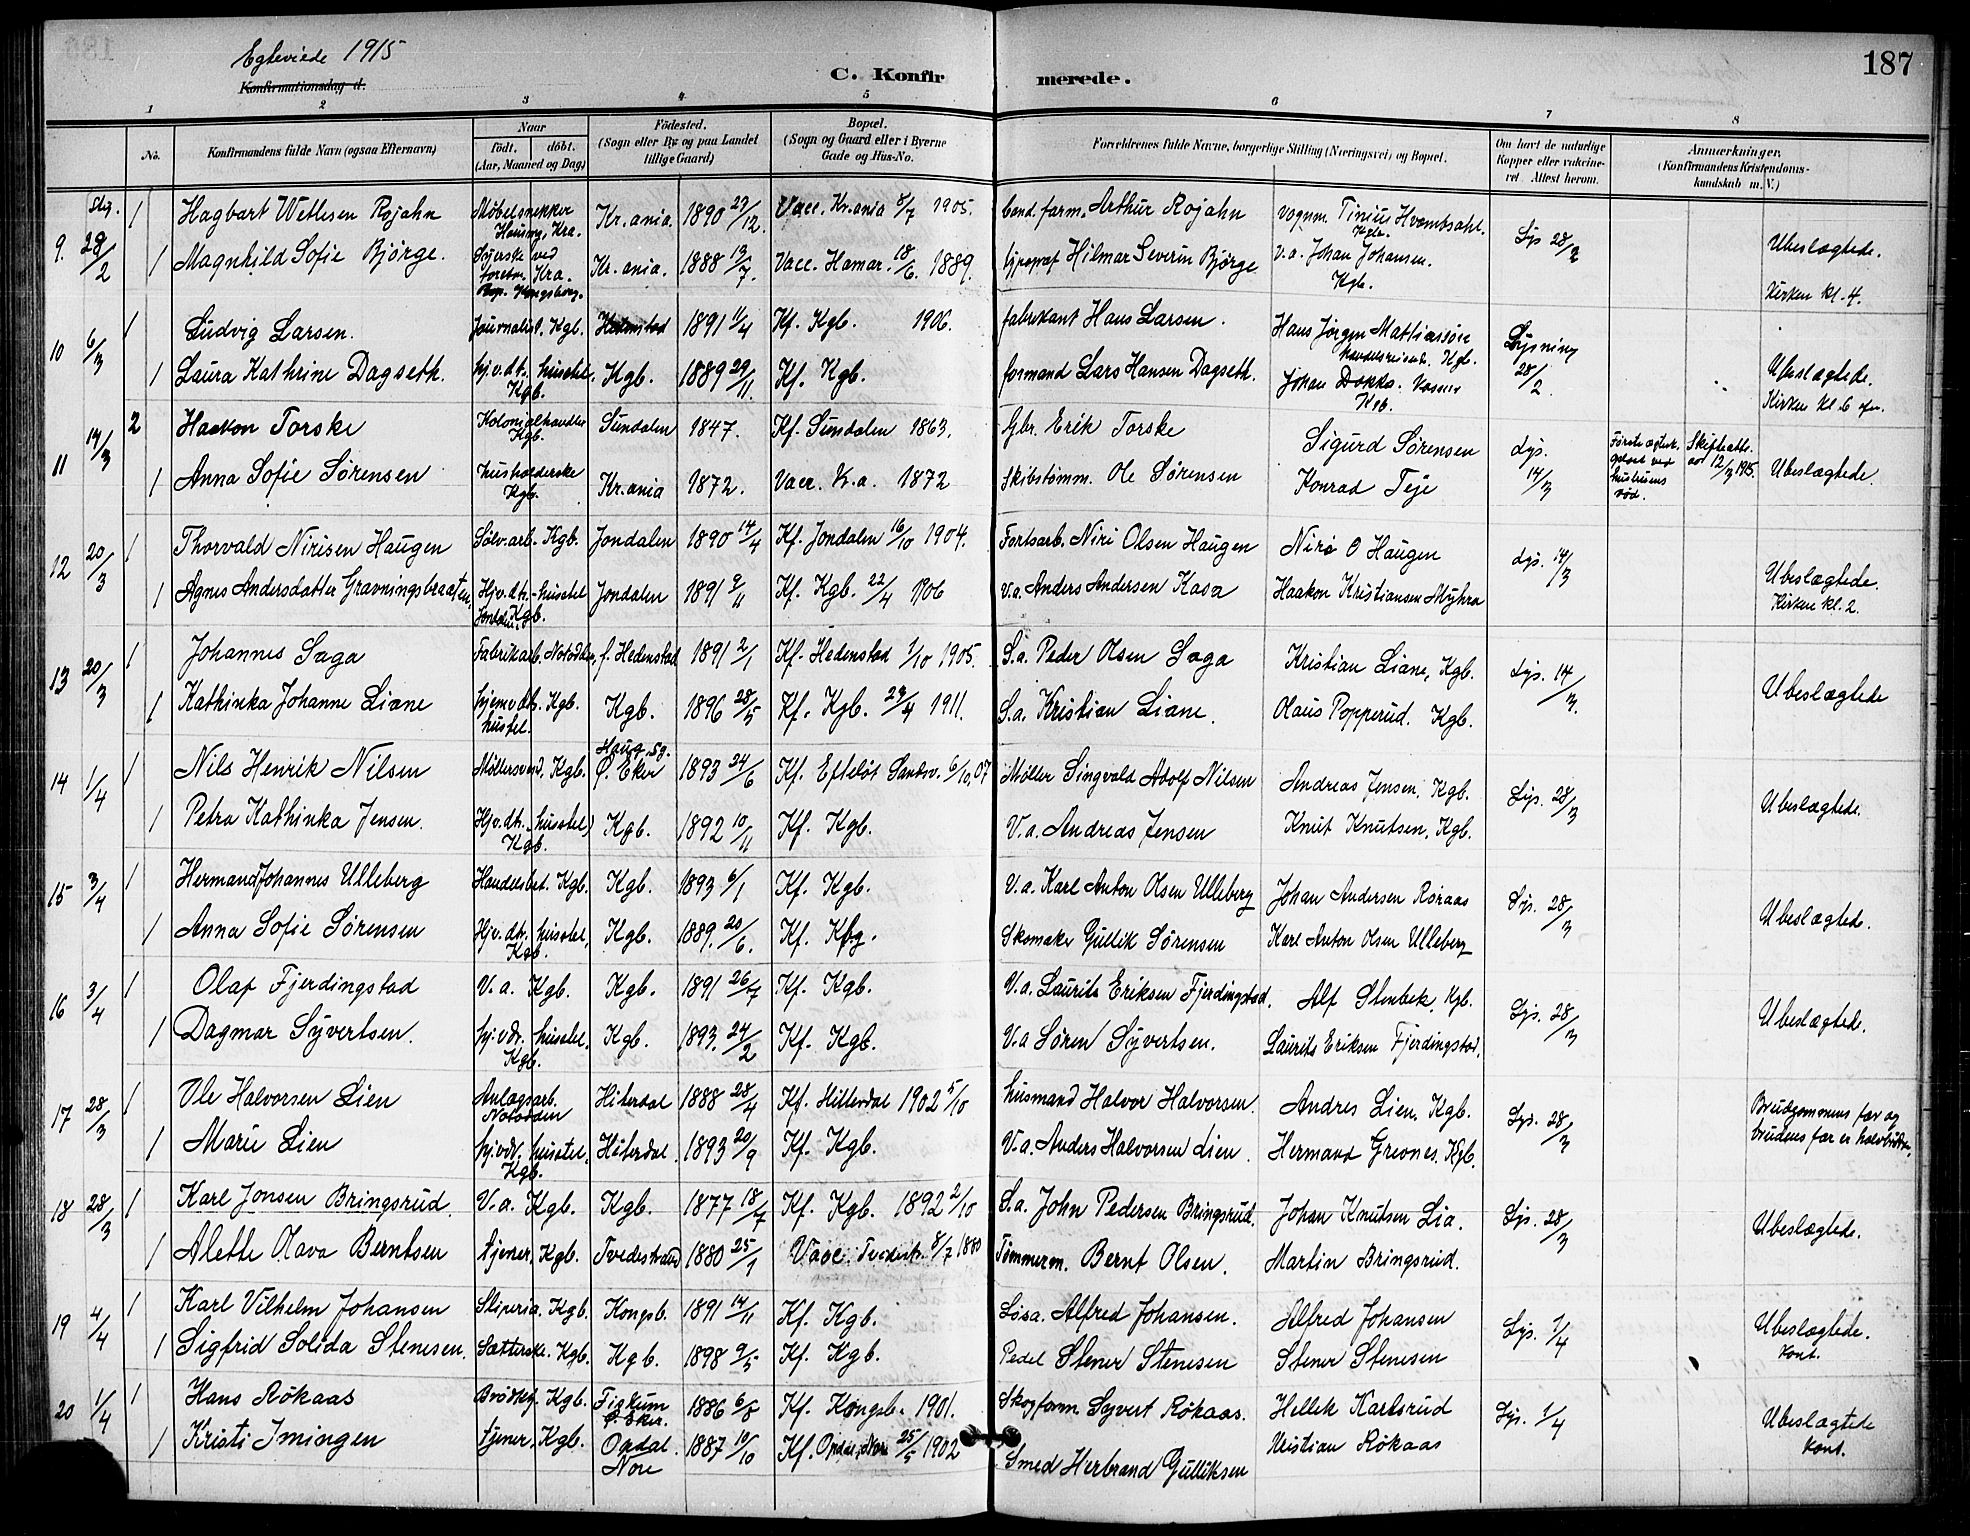 Egteviede 1915
Konfirmationsdag d.
C. Konfirmerede.
187
1 2 3 4 5 6 7 8
No. Konfirmandens fulde Navn (ogsaa Efternavn) Naar født. døbt. (Aar, Maaned og Dag) Fødested. (Sogn eller By og paa Landet tillige Gaard) Bopæl. (Sogn og Gaard eller i Byerne Gade og Hus-No. Forældrenes fulde Navne, borgerlige Stilling (Næringsvei) og Bopæl. Om havt de naturlige Kopper eller vakcineret. Attest herom. Anmærkninger, (Konfirmandens Kristendomskundskab m. V.)
1 Hagbart Wetlesen Rojahn Møbelsnekker Kra. Kr.ania 1890 27/12. Vacc. Kr.ania 8/7 1905. Cand. farm. Arthur Rojahn Vognm. Tinius Hvambsahl. Kgb.
9. 28/2 1 Magnhild Sofie Bjørge. Syerske ved Kra. Kr.ania. 1888 13/7. Vacc. Hamar. 18/6. 1889. typograf Hilmar Severin Bjørge V.a. Johan Johansen. Kgb. Lys 28/2 Ubeslægtede. Kirken kl. 4.
10 6/3 1 Ludvig Larsen. Journalist. Kgb. 1891 11/4 Kf. Kgb. 1906. fabrikant Hans Larsen. Hans Jørgen Mathiassen Handelsreisende. Kgb. Lysning 28/2.
1 Laura Kathrine Dagseth. hj.v.dt. husstel. Kgb. Kgb. 1889 29/11. Kf. Kgb. formand Lars Hansen Dagseth. Johan Dokka. Kgb. Ubeslægtede. Kirken kl 6
11 14/3 2 Haakon Torske Kolonialhandler Kgb. Sundalen 1847. Kf. Sundalen 1863. Gbr. Erik Torske Sigurd Sørensen Lys. 14/3 Første egtesk. opløst ved hustruens død. Skifteatt. av 12/3 1915. Ubeslægtede.
1 Anna Sofie Sørensen husholderske Kgb. Kr.ania 1872. Vacc. K.a. 1872 Skibstømm. Ole Sørensen Konrad Teje
12 20/3 1 Thorvald Nirisen Haugen Sølv.arb. Kgb. Jondalen 1890 14/4 Kf. Jondalen 16/10 1904. Niri Olsen Haugen Niri O Haugen Lys. 14/3
1 Agnes Andersdatter Gravningsbraaten Hj.v.dt. husstel Kgb. Jondalen 1891 9/11 Kf. Kgb. 22/4 1906 V.a. Anders Andersen Kasa Haakon Kristiansen Myhra Ubeslægtede. Kirken kl. 2.
13 20/3 1 Johannes Saga Fabrikarb. Notodden, f. Hedenstad 1891 2/1 Kf. Hedenstad 1/10 1905. S.a. Peder Olsen Saga Kristian Liane, Kgb. Lys. 14/3.
1 Kathinka Johanne Liane hjemv.dt. Kgb. husstel. Kgb. 1896 28/5 Kf. Kgb. 23/4 1911. S.a. Kristian Liane. Olaus Popperud. Kgb. Ubeslægtede
14 1/4 1 Nils Henrik Nilsen Møllersvend. Kgb. Haug sg. Ø. Eker 1893 24/6 Kf. Efteløt Sandsv. 6/10.07 Møller Singvald Adolf Nilsen Andreas Jensen, Kgb. Lys. 28/3
1 Petra Kathinka Jensen. Hj.v.dt. husstel Kgb. Kgb. 1892 10/11 Kf. Kgb. V.a. Andreas Jensen Knut Knutsen, Kgb. Ubeslægtede.
15 3/4 1 Hermand Johannes Ulleberg Handelsbet. Kgb. Kgb. 1893 6/1 Kf. Kgb. V.a. Karl Anton Olsen Ulleberg Johan Andersen Roraas Lys. 28/3
1 Anna Sofie Sørensen Hj.v.dt. husstel. Kgb. Kgb. 1889. 20/6. Kf. Kbg. Skomaker Gullik Sørensen Karl Anton Olsen Ulleberg Ubeslægtede.
16 3/4 1 Olaf Fjerdingstad V.a. Kgb. Kgb. 1891 26/7 Kf. Kgb. V.a. Laurits Eriksen Fjerdingstad. Alf Stenbek, Kgb. Lys. 28/3
1 Dagmar Syvertsen. hj.v.dt. husstel. Kgb. Kgb. 1893. 24/2 Kf. Kgb. V.a Søren Syvertsen. Laurits Eriksen Fjerdingstad. Ubeslægtede.
17 28/3 1 Ole Halvorsen Lien Anlægsarb. Notodden Hiterdal 1888 28/4 Kf. Hitterdal 1902 5/10 husmand Halvor Halvorsen. Andres Lien, Kgb. Lys. 28/3 Brudgommens far og brudens far er halvbrødre.
1 Marie Lien hj.v.dt. husstel. Kgb. Hiterdal. 1893 20/9 Kf. Kgb. V.a. Anders Halvorsen Lien. Hermand Grevnes. Kgb.
18 28/3 1 Karl Jonsen Bringsrud. V.a. Kgb. Kgb. 1877 18/7 Kf. Kgb. 1892 2/10 S.a. John Pedersen Bringsrud. Johan Knutsen Lia. Lys. 28/3
1 Alette Olava Berntsen tjener, Kgb. Tvedestrand 1880 25/1 Vacc. Tvedestr. 8/7 1880 Tømmerm. Bernt Olsen. Martin Bringsrud. Ubeslægtede.
19 4/4 1 Karl Vilhelm Johansen Sliperia. Kgb. Kongsb. 1891 14/11 Kf. Kgb. Løsa. Alfred Johansen. Alfred Johansen Lys. 1/4
1 Sigfrid Solida Stenesen. Sætterske. Kgb. Kgb. 1898 9/5 Kf. Kgb. Pedel Stener Stenesen Stener Stenesen Ubeslægtede. kont.
20 1/4 1 Hans Røkaas Brødkj. Kgb. Fiskum Ø. Eker. 1886 6/8 Kf. Kongsb. 1901. Skogform. Syvert Røkaas. Hellek Karlsrud Lys. 1/4
1 Kristi Imingen tjener, Kgb. Opdal. Nore 1887 10/10 Kf. Opdal, Nore 25/5 1902 Smed Herbrand Gulliksen Kristian Røkaas Ubeslægtede kont.